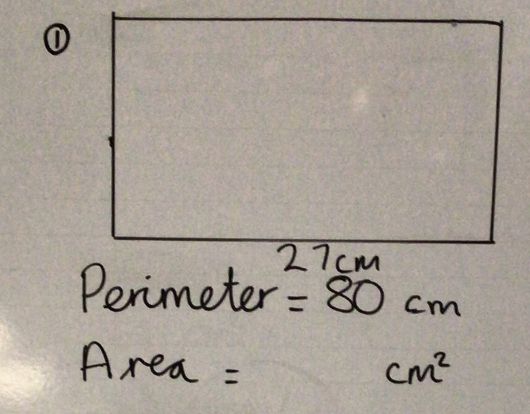 ①
27cm
Perimeter = 80 cm
Area = cm²